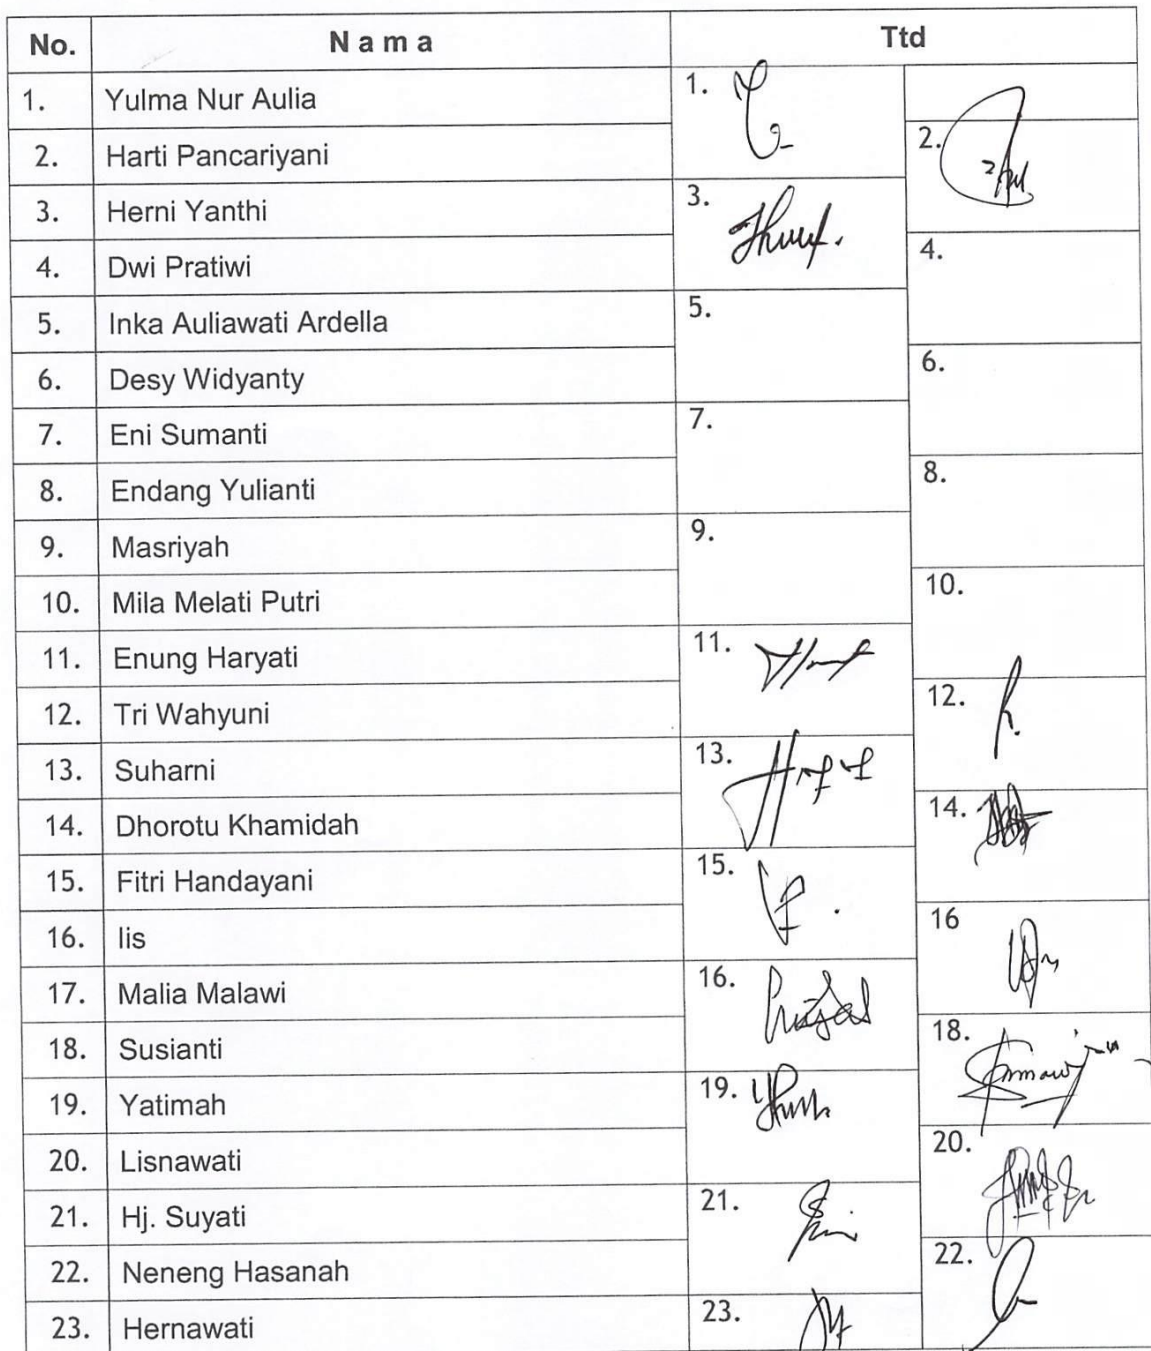 No. N a m a Ttd
1. Yulma Nur Aulia 1.
2. Harti Pancariyani 2.
3. Herni Yanthi 3.
4. Dwi Pratiwi 4.
5. Inka Auliawati Ardella 5.
6. Desy Widyanty 6.
7. Eni Sumanti 7.
8. Endang Yulianti 8.
9. Masriyah 9.
10. Mila Melati Putri 10.
11. Enung Haryati 11.
12. Tri Wahyuni 12.
13. Suharni 13.
14. Dhorotu Khamidah 14.
15. Fitri Handayani 15.
16. Iis 16
17. Malia Malawi 16.
18. Susianti 18.
19. Yatimah 19.
20. Lisnawati 20.
21. Hj. Suyati 21.
22. Neneng Hasanah 22.
23. Hernawati 23.